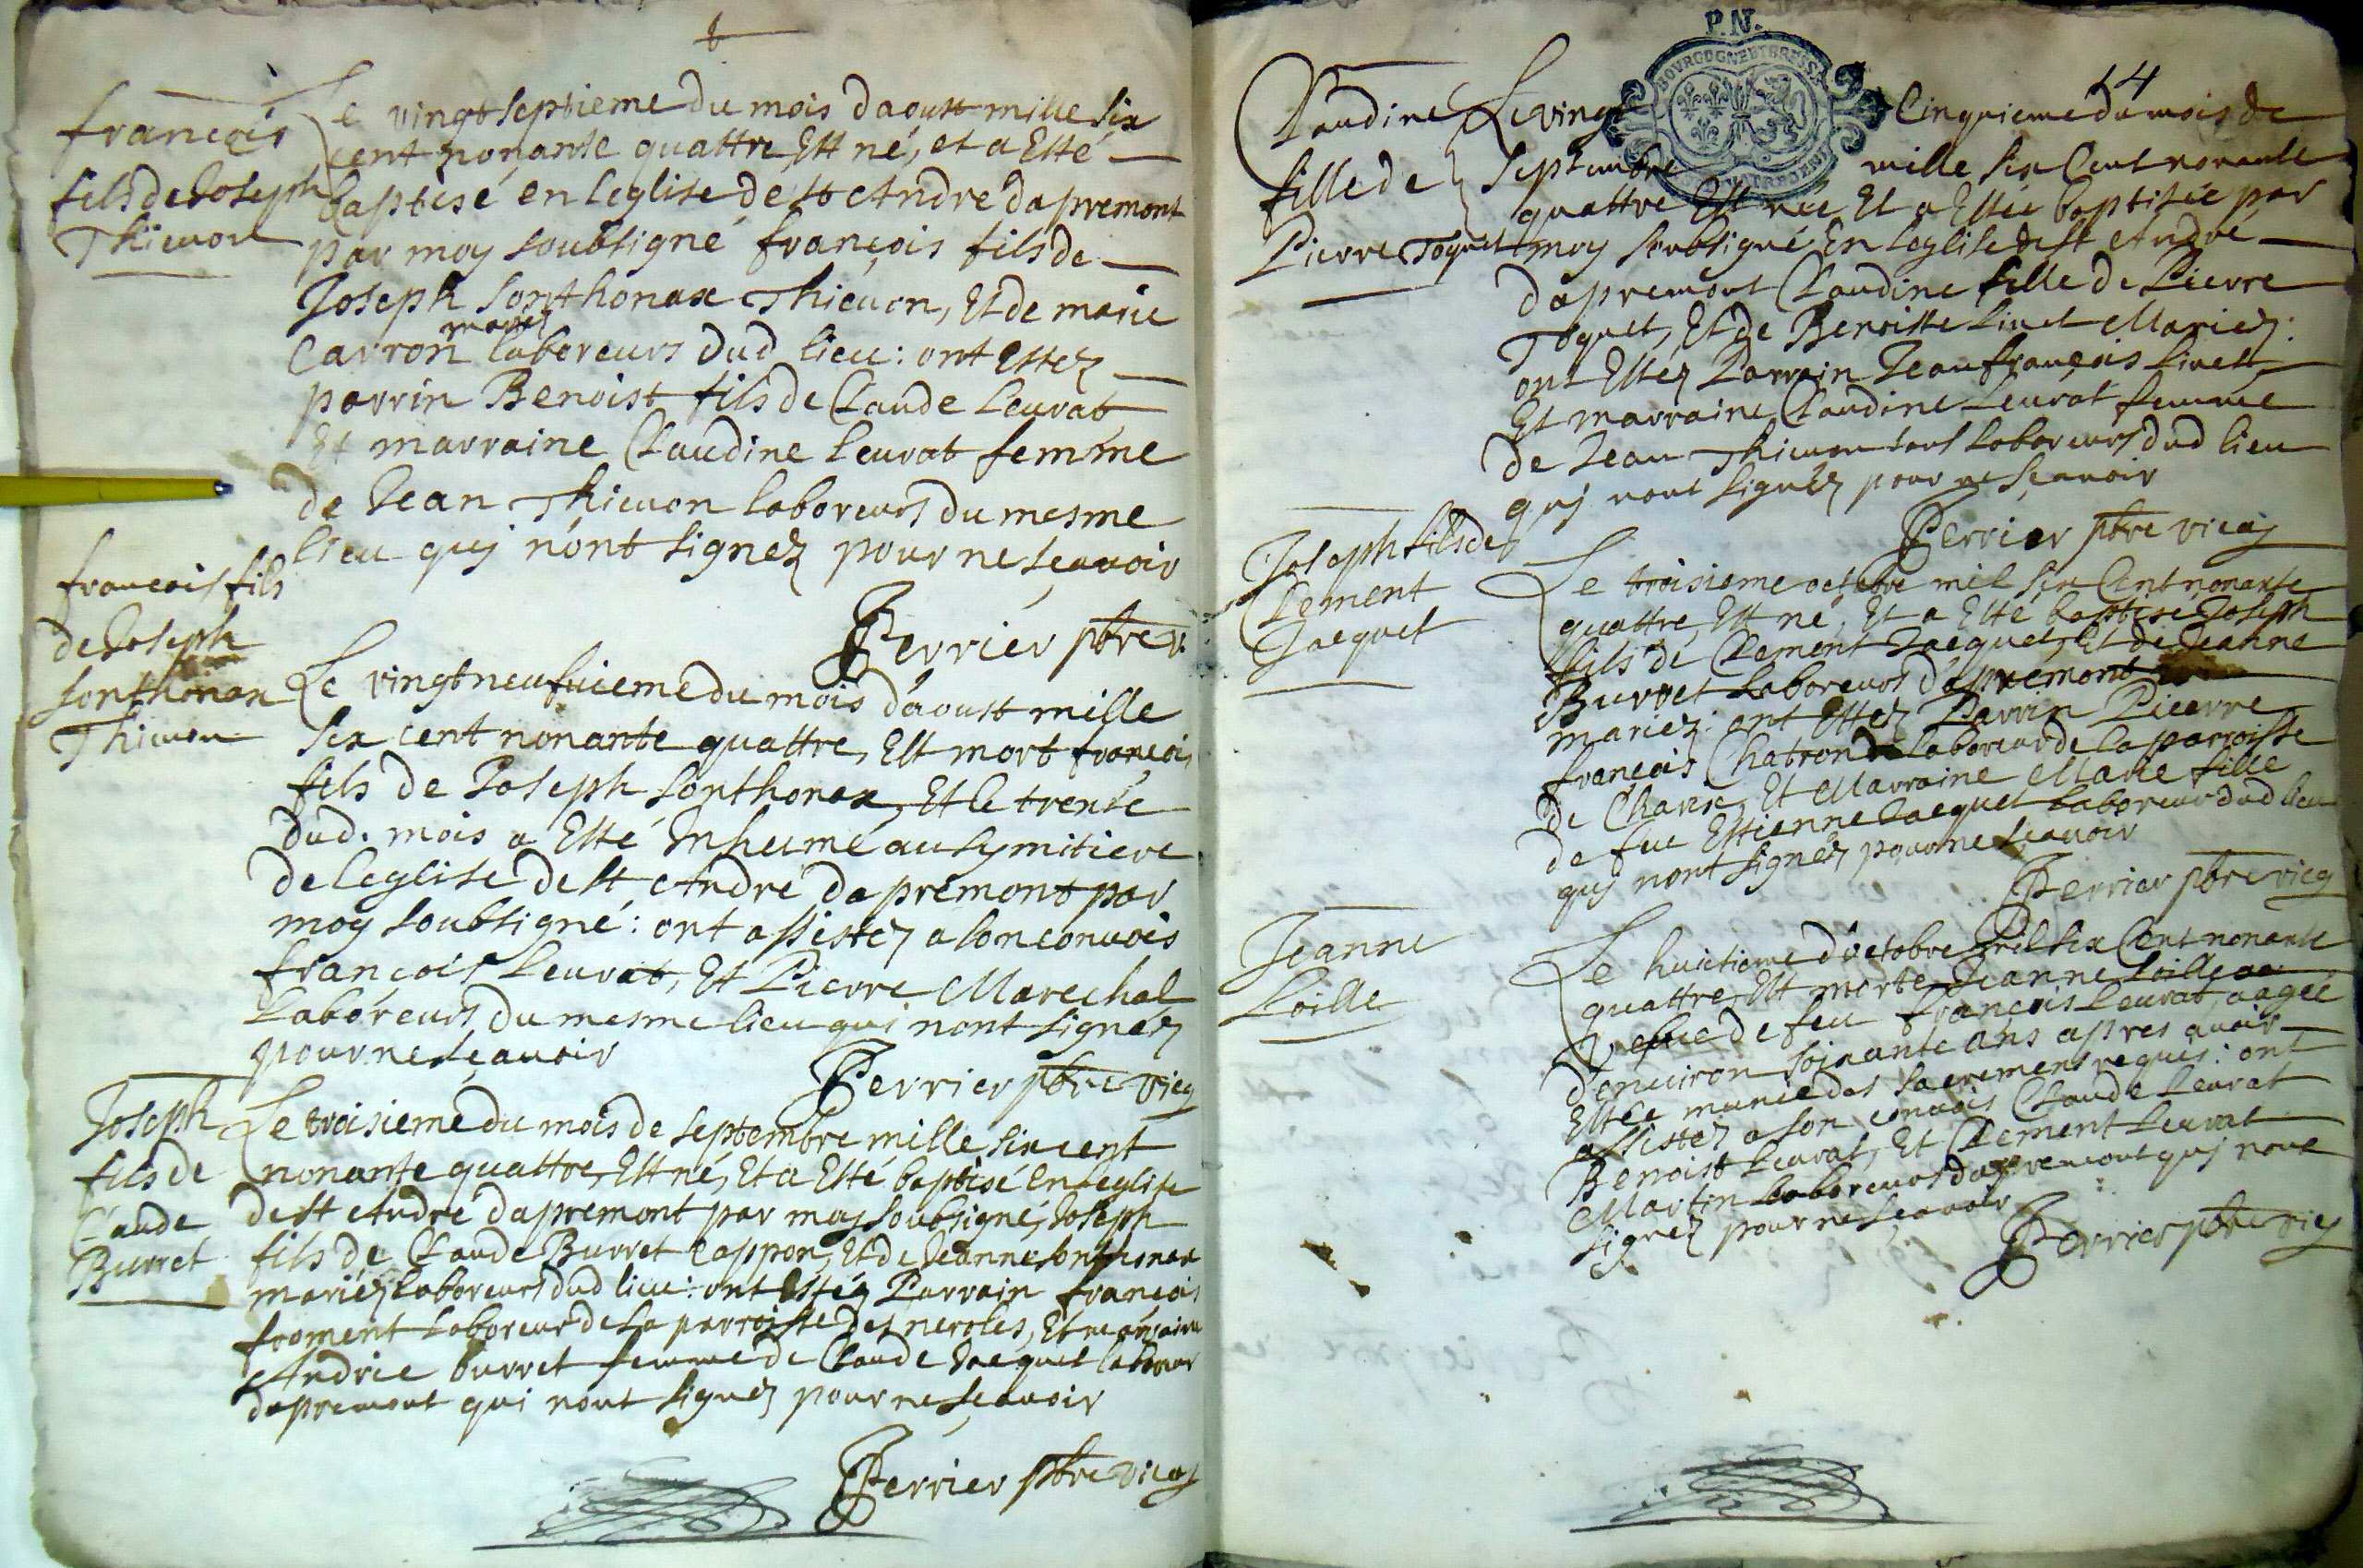 françois
fils de Joseph
Thieuon
Le vingt septieme du mois daoust mille six
cent nonante quattre Est né, et a Esté
baptisé en leglise de st Andre dapremont
par moy soubsigné françois fils de
Joseph Sonthonax Thieuon, Et de marie
mariez
Carron laboreurs dud lieu: ont Estez
parrin Benoist fils de Claude Leurat
Et marraine Claudine Leurat femme
de Jean Thieuon laboreurs du mesme
lieu quj nònt signez pour ne scauoir
Perrier pbre v.
françois fils
de Joseph
Sonthonax
Thieuon
Le vingt neufuieme du mois dàoust mille
six cent nonante quattre, Est mort françois
fils de Joseph Sonthonax, Et le trente
dud. mois a Esté Inhumé au Symitiere
de leglise de st Andre dapremont par
moy soubsigné: ont assistez a son conuois
françois Leurat, Et Pierre Marechal
Laboreurs du mesme lieu qui nont signéz
pour ne scauoir
Perrier pbre vicq
Joseph
fils de
Claude
Burret
Le troisieme du mois de septembre mille six cent
nonante quattre, Est né, Et a Esté baptisé En leglise
de st Andre dapremont par moy soubsigné, Joseph
fils de Claude Burret Cappon, Et de Jeanne Sonthonax
mariéz laboreurs dud lieu: ont Estéz Parrain françois
froment Laboreur de La parroisse des neroles, Et marraine
Andrie burret femme de Claude Jacquet laboreur
dapremont qui nont signez pour ne scauoir
Perrier pbre vicq
P.N.
BOVRGOGNE ET BRESSE
14
Claudine
fille de
Pierre Toquet
Le vingt Cinquieme du mois de
Septembre mille six Cent nonante
quattre Est née Et a Estée baptisée par
moy soubsigné En leglise de st André
dàpremont Claudine fille de Pierre
Toquet, Et de Benoiste Liuet Mariez:
ont Estez Parrain Jean françois Liuet
Et marraine Claudine Leurat femme
de Jean Thieuon tous Laboreurs dud lieu
quj nont signéz pour ne scauoir
Perrier pbre vicq
Joseph fils de
Clement
Jacquet
Le troisieme octobre mil six Cent nonante
quattre, Est né, Et a Esté baptise Joseph
fils de Clement Jacquet, Et de Jeanne
Burret Laboreurs dàpremont
mariez: ont Estez Parrin Pieerre
françois Chatron laboreur de la parroisse
de Charix, Et Marraine Marie fille
de feu Estienne Jacquet Laboreur dud lieu
quj nont signéz pour ne scauoir
Perrier pbre vicq
Jeanne
Loille
Le huictieme dòctobre mil six Cent nonante
quattre, Est morte Jeanne Loille
vefue de feu françois Leurat, aagée
dènuiron soixante ans apres auoir
Estée munie des sacrements requis: ont
assistez a son conuois Claude Leurat
Benoist Leurat, Et Clement Leurat
Martin Laboreurs dapremont quj nont
signez pour ne scauoir
Perrier pbre vicq